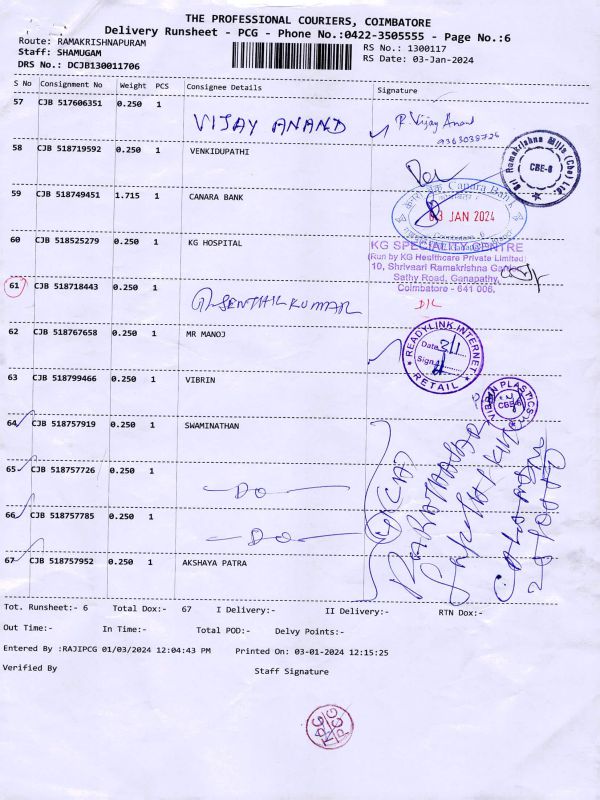 THE PROFESSIONAL COURIERS, COIMBATORE
Delivery Runsheet - PCG - Phone No.:0422-3505555 - Page No.:6
Route: RAMAKRISHNAPURAM
Staff: SHAMUGAM
DRS No.: DCJB130011706
RS No.: 1300117
RS Date: 03-Jan-2024
S No Consignment No Weight PCS Consignee Details Signature
57 CJB 517606351 0.250 1 VIJAY ANAND P Vijay Anand
58 CJB 518719592 0.250 1 VENKIDUPATHI
Sri Ramakrishna Mills (Cbe) Ltd.
CBE-6
59 CJB 518749451 1.715 1 CANARA BANK
Canara Bank
03 JAN 2024
60 CJB 518525279 0.250 1 KG HOSPITAL
KG SPECIALITY CENTRE
(Run by KG Healthcare Private Limited)
10, Shrivaari Ramakrishna Garden
Sathy Road, Ganapathy,
Coimbatore - 641 006.
61 CJB 518718443 0.250 1 SENTHIL KUMAR D/L
62 CJB 518767658 0.250 1 MR MANOJ
READY-LINK INTERNET
Date 3/1
Sign
RETAIL
63 CJB 518799466 0.250 1 VIBRIN
VIBRIN PLASTICS
CBE-6
64 CJB 518757919 0.250 1 SWAMINATHAN
65 CJB 518757726 0.250 1 -DO-
66 CJB 518757785 0.250 1 -DO-
67 CJB 518757952 0.250 1 AKSHAYA PATRA
Tot. Runsheet:- 6 Total Dox:- 67 I Delivery:- II Delivery:- RTN Dox:-
Out Time:- In Time:- Total POD:- Delvy Points:-
Entered By :RAJIPCG 01/03/2024 12:04:43 PM Printed On: 03-01-2024 12:15:25
Verified By Staff Signature
PCG